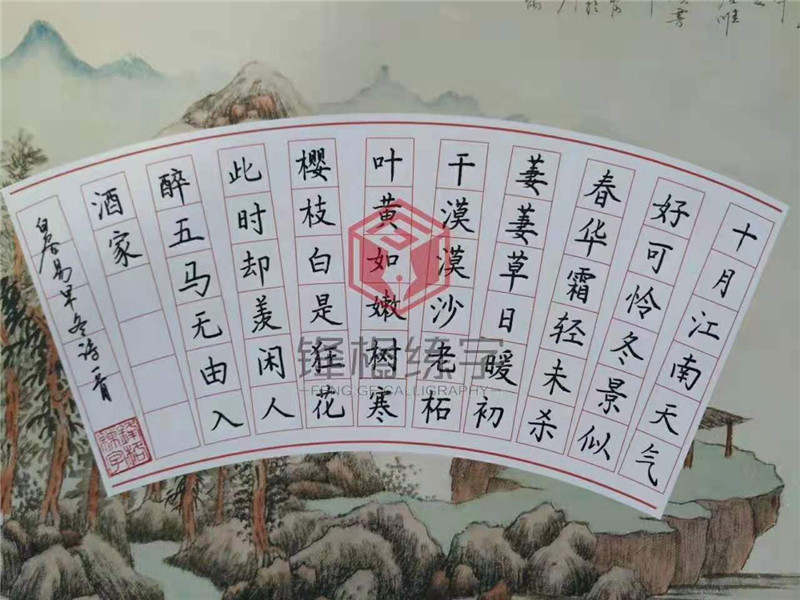 十月江南天气
好可怜冬景似
春华霜轻未杀
萋萋草日暖初
干漠漠沙老柘
叶黄如嫩树寒
樱枝白是狂花
此时却羡闲人
醉五马无由入
酒家
白居易早冬诗一首
锋格练字
锋格练字
FENG GE CALLIGRAPHY